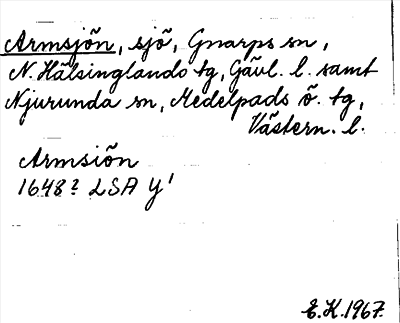 Armsjön, sjö, Gnarps sn,
N. Hälsinglands tg, Gävl. l. samt
Njurunda sn, Medelpads ö. tg,
Västern. l.
Armsiön
1648? LSA Y¹
E.K. 1967.